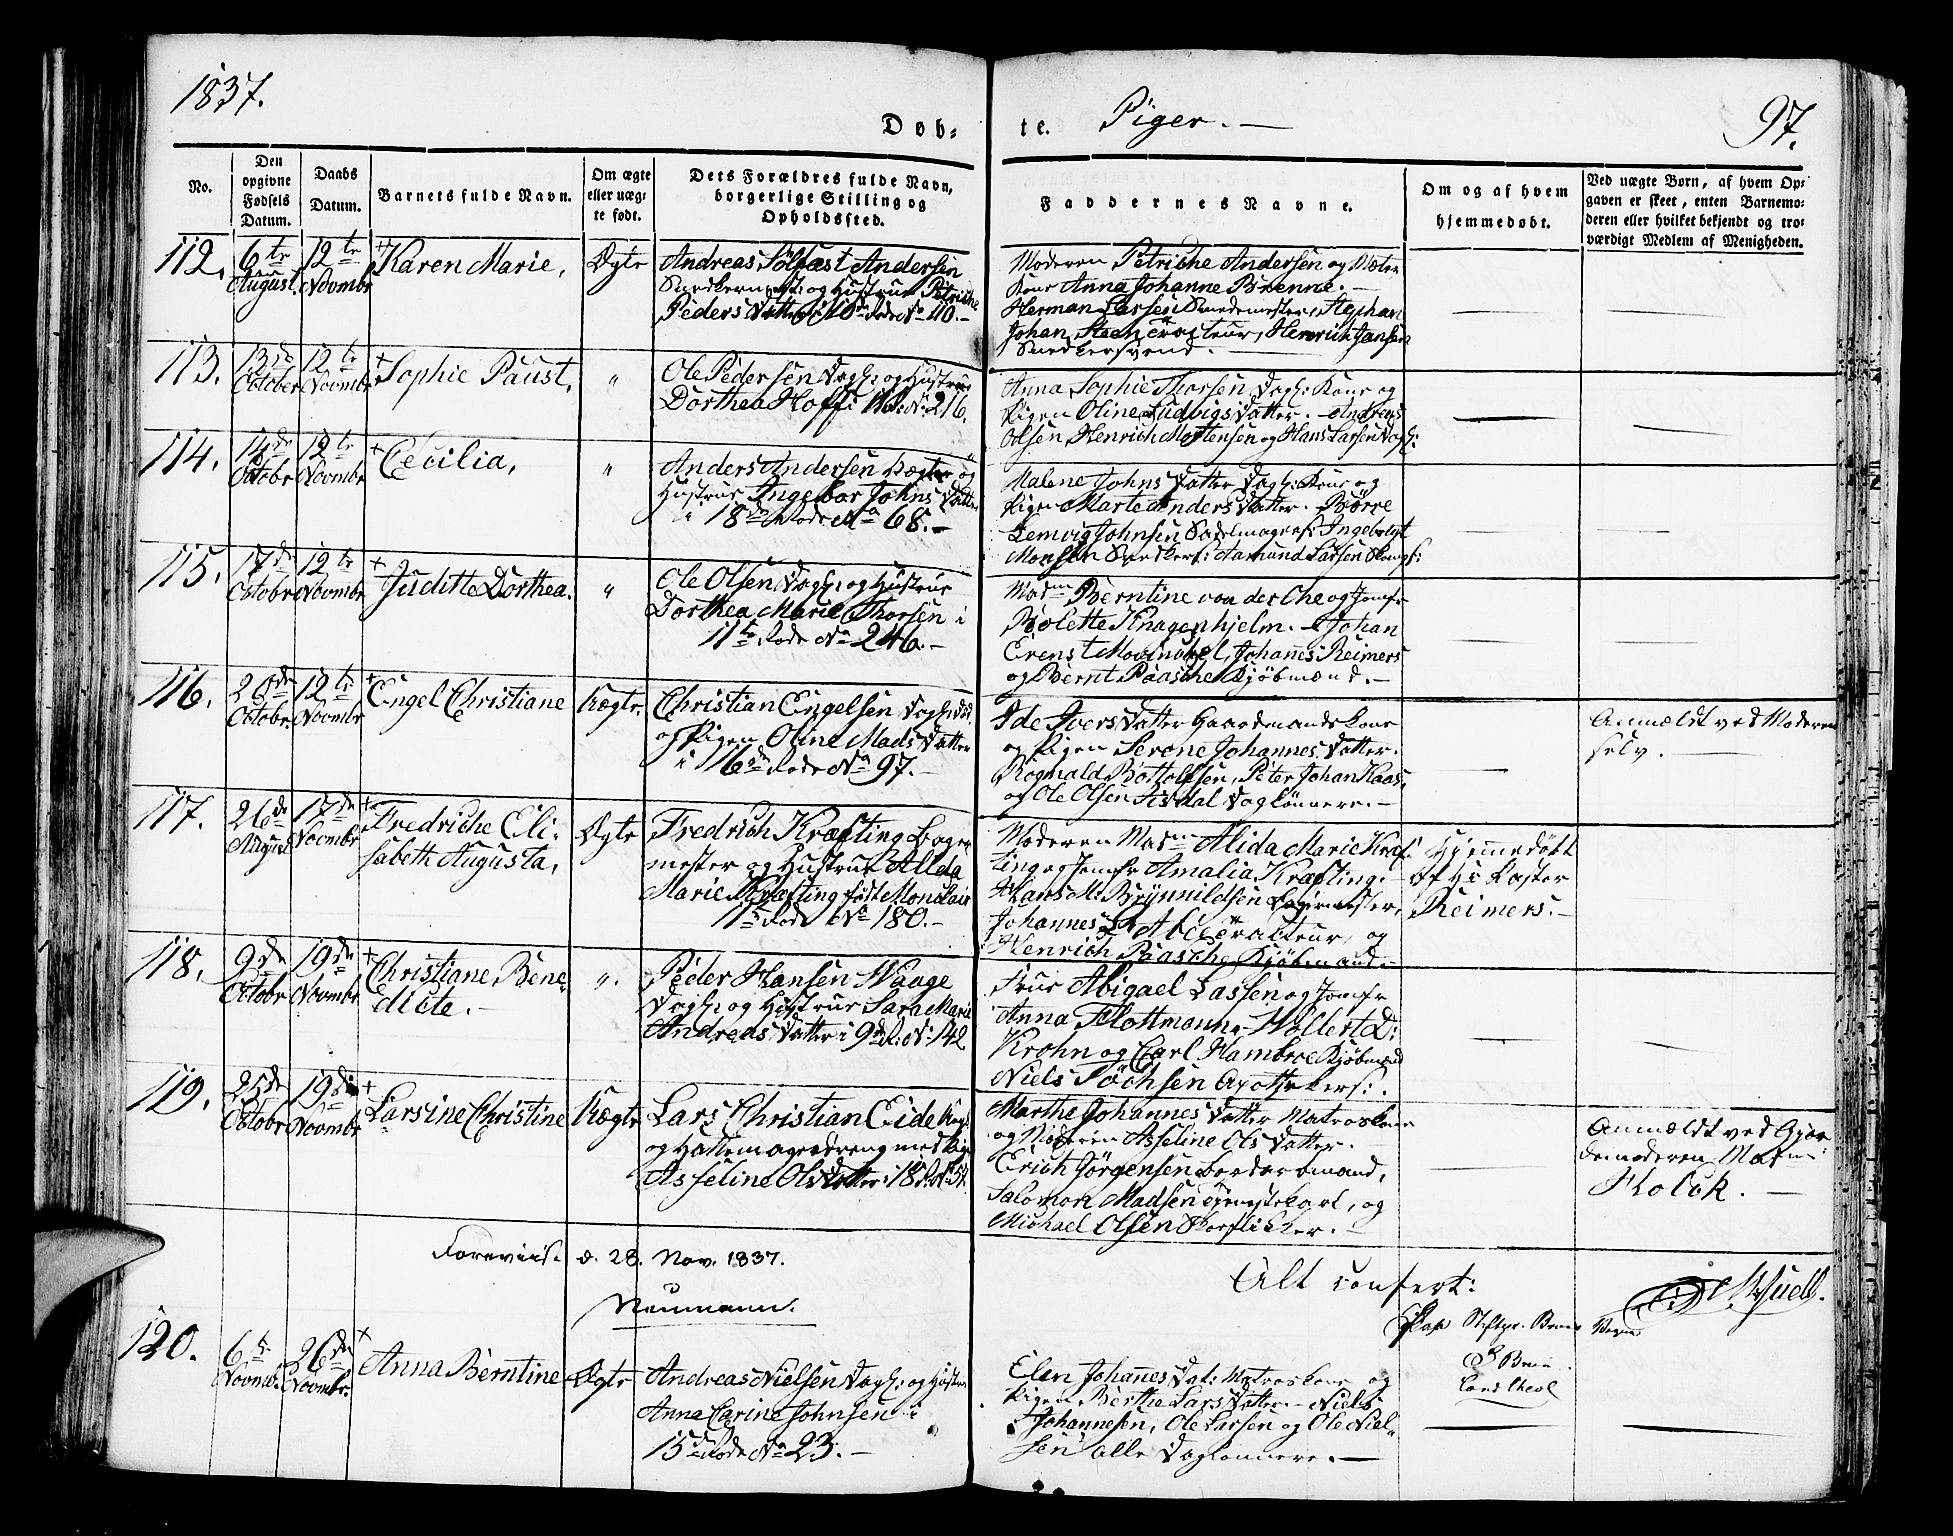 1837.
Døb-
te. Piger. —
97.
No.
Den opgivne Fødsels Datum.
Daabs Datum.
Barnets fulde Navn.
Om ægte eller uægte født.
Dets Forældres fulde Navn, borgerlige Stilling og Opholdssted.
Faddernes Navne.
Om og af hvem hjemmedøbt.
Ved uægte Børn, af hvem Opgaven er skeet, enten Barnemoderen eller hvilket bekjendt og troværdigt Medlem af Menigheden.
112. 6te August 12te Novmbr + Karen Marie, Ægte
Andreas Sølfæst Andersen
og Hustrue Petriche
Peders Datter i 10de Rode No 40. —
Moderen Petriche Andersen og
Kone Anna Johanne Brenne. —
Herman Larsen Smedemester, Stephan
Johan Steen Mægler, Henrich Jansen
Snedkersvend. —
113. 13de October 12te Novmbr + Sophie Paust, "
Ole Pedersen Dagl: og Hustrue
Dorthea Hoff i No: 216.
Anna Sophie Thorsen Dagl: Kone og
Pigen Oline Ludvigs Datter. — Andreas
Olsen, Henrich Mortensen og Hans Larsen Dagl:
114. 14de Octobr 12te Novmbr + Cecilia, "
Anders Andersen Vægter og
Hustrue Ingebor Johns Datter
i 18de Rode No 68. —
Malene Johns Datter Dagl: Kone og
Pigen Marte Anders Datter. Børre
Lemvig Johnsen Sadelmagers: Ingebrigt
Monsen Snedkers: Aamund Larsen
115. 17de Octobr 12te Novmbr + Juditte Dorthea. "
Ole Olsen Dagl: og Hustrue
Dorthea Marie Thorsen i
11te Rode No 246. —
Madm Berntine von der Lhe og Jomfr
Bolette Knagenhjelm. — Johan
Ernst Mowinckel, Johannes Reimers
og Bernt Paasche Kjøbmænd. —
116. 20de Octobr. 12te Novmbr + Engel Christiane Uægte.
Christian Engelsen
og Pigen Oline Mads Datter
i 16de Rode No 97. —
Ide Ivers Datter Gaardmandskone
og Pigen Serone Johannes Datter.
Rognald Bottolfsen, Peter Johan Kaas,
og Ole Olsen Daglønnere. —
Anmældt ved Moderen
selv. —
117. 26de August 17de Novmbr + Fredriche Eli-
sabeth Augusta, Ægte
Fredrich Kræfting Bager
mester og Hustrue Alida
Marie Kræfting født Monclair
11te Rode No 180. —
Moderen Madm Alida Marie Kræf-
ting og Jomfr Amalia Kræfting. —
Hans M: Brynnildsen Bagermester,
Johannes Mægler, og
Henrich Paasche Kjøbmand. —
Hjemmedøbt
af Hr Pastor
Reimers. —
118. 9de Octobr 19de Novmbr. + Christiane Bene-
dicte. — "
Peder Hansen Waage
Dagl: og Hustrue Sara Marie
Andreas Datter i 9de R: No: 142
Frue Abigael Lassen og Jomfr
Anna Flottmann. — Wollert D:
Krohn og Carl Hambroe Kjøbmænd
Niels Apothekers:.
119. 25de Octobr 19de Novmbr + Larsine Christine Uægte
Lars Christian Eide
og Hattemagerdreng med Pigen
Asseline Ols Datter i 18de R: No 51.
Marthe Johannes Datter Matroskone
og Moderen Asseline Ols Datter.
Erich Jørgensen
Salomon Madsen Tjenestekarl, og
Michael Olsen
Anmældt ved Gjor-
demoderen Madm:
Holck. —
Foreviist d. 28. Nov. 1837.
Neumann.
Alt confert:
120. 6te Novmbr. 26de Novmbr. + Anna Berntine Ægte
Andreas Nielsen Dagl: og Hustrue
Anne Carine Johnsen i
15de Rode No 23. —
Elen Johannes Dat: Matroskone og
Pigen Berthe Lars Datter. — Niels
Johannesen, Ole Larsen og Ole Niel-
sen alle Daglønnere. —